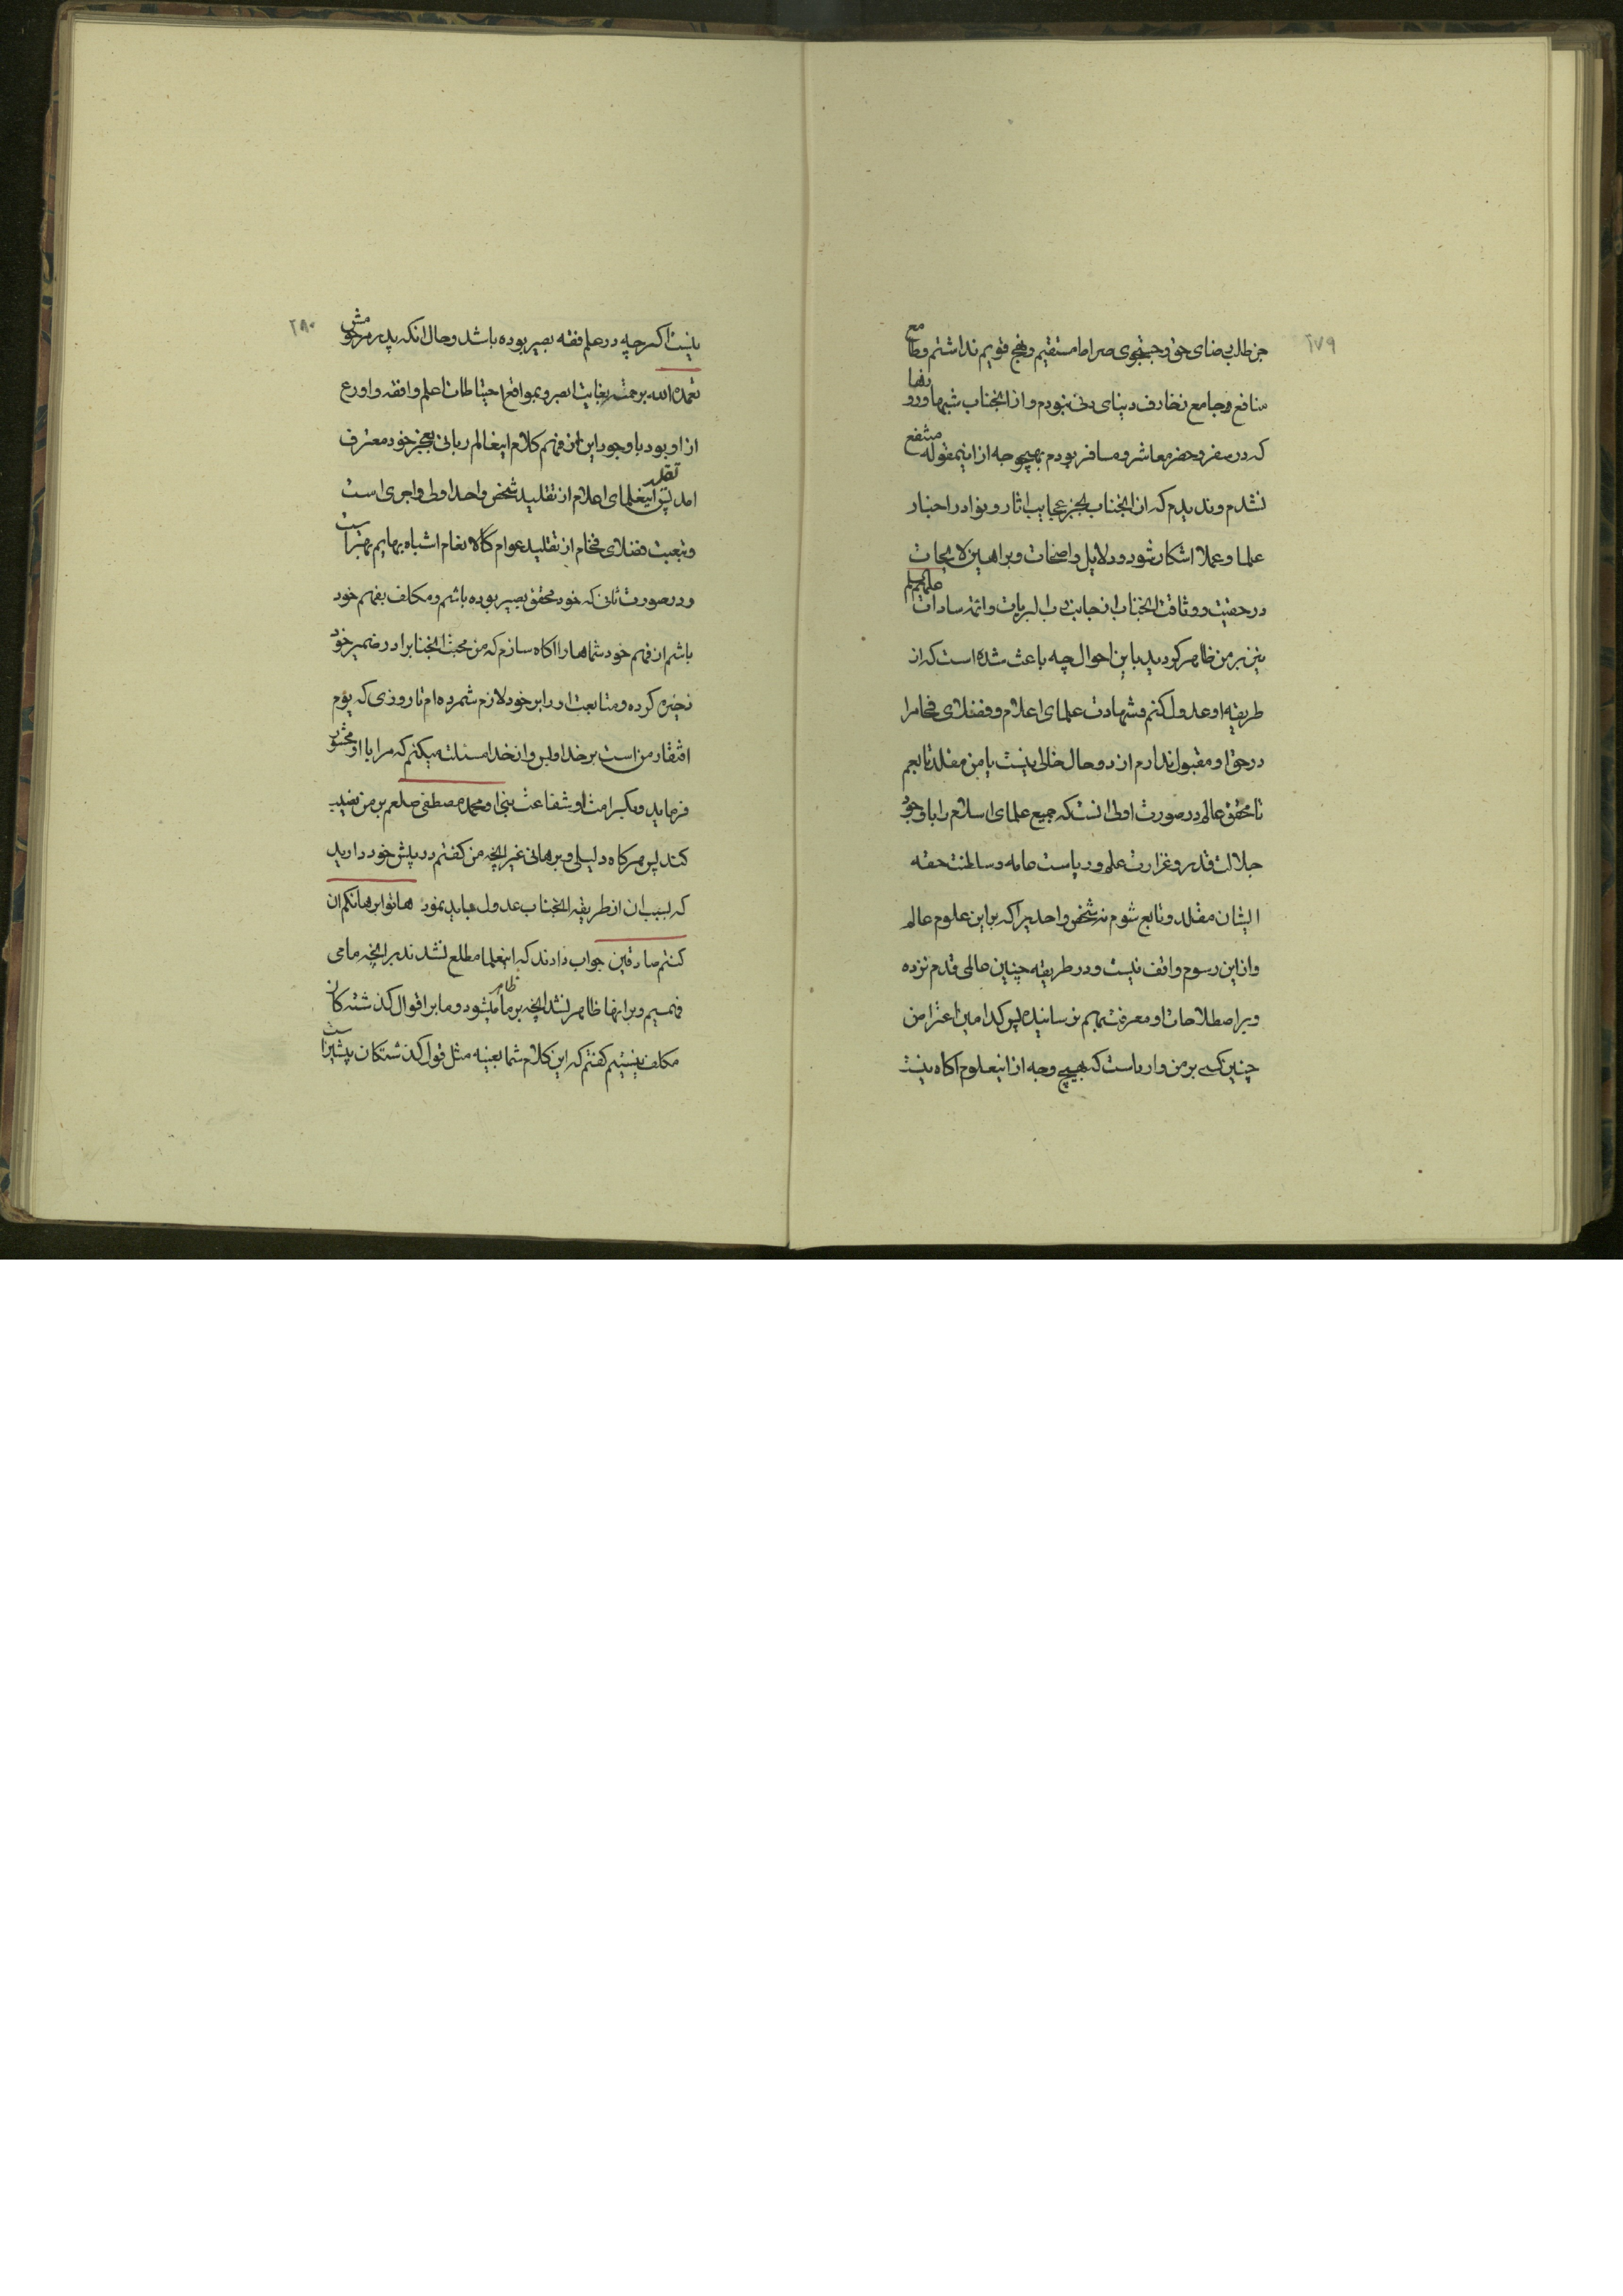 ۲۷۹
جز طلب رضای حق و جستجوی صراط مستقیم و نهج قویم نداشتم و طامع
منافع و جامع زخارف دنیای دنی نبودم و از انجناب شبها و روزها
که در سفر و حضر معاشر و مسافر بودم بهیچوجه از اینمقوله منتفع
نشدم و ندیدم که از انجناب بجز عجایب اثار و نوادر اخبار
علما و عملا اشکار شود و دلایل واضحات و براهین لایحات
در حقیت و وثاقت انجناب از جانب رب البریات و ائمه سادات علیهم السلم
نیز بر من ظاهر کردید با این احوال چه باعث شده است که از
طریقه او عدول کنم و شهادت علمای اعلام و فضلای فخام را
در حق او مقبول ندارم از دو حال خالی نیست یا من مقلد تابعم
تا محقق عالم در صورت اولی انست که جمیع علمای اسلام را با وجود
جلالت قدر و غزارت علم و ریاست عامه و سالطنت حقه
ایشان مقلد و تابع شوم نه شخص واحد یرا که بر این علوم عالم
و از این رسوم واقف نیست و در طریقه چنین عالمی قدم نزده
و بر اصطلاحات او معرفت بهم نرسانیده پس کدامین اعتراض
چنین کسی بر من وارد است که بهیچ وجه از اینعلوم اکاه نیست
۲۸۰
نیست اکرچه در علم فقه بصیر بوده باشد و حال انکه پدر مرحومش
تغمده الله برحمته بغایت ابصر و بمواقع احتیاطات اعلم و افقه و اورع
از او بود با وجود این از فهم کلام اینعالم ربانی بعجز خود معترف
امد پس تقلید اینعلمای اعلام از تقلید شخص واحد اولی و احری است
و تبعیت فضلای فخام از تقلید عوام کالانعام اشباه بهایم بهتر است
و در صورت ثانی که خود محقق بصیر بوده باشم و مکلف بفهم خود
باشم از فهم خود شماها را اکاه سازم که من محبت انجناب را در ضمیر خود
ذخیره کرده و متابعت او را بر خود لازم شمرده ام تا روزی که یوم
افتقار من است بر خدا و لین و از خدا مسئلت میکنم که مرا با او محشور
فرماید و بکرامت او شفاعت نبی او محمد مصطفی صلعم بر من نصیب
کند پس هر کاه دلیلی و برهانی غیر انچه من کفتم در پیش خود دارید
که بسبب ان از طریقه انجناب عدول میباید نمود هاتوا برهانکم ان
کنتم صادقین جواب دادند که اینعلما مطلع نشدند بر انچه ما می
فهمیم و بر انها ظاهر نشد انچه بر ما ظاهر میشود و ما بر اقوال کذشته کان
مکلف نیستیم کفتم که این کلام شما بعینه مثل قول کذشتکان پیشین است